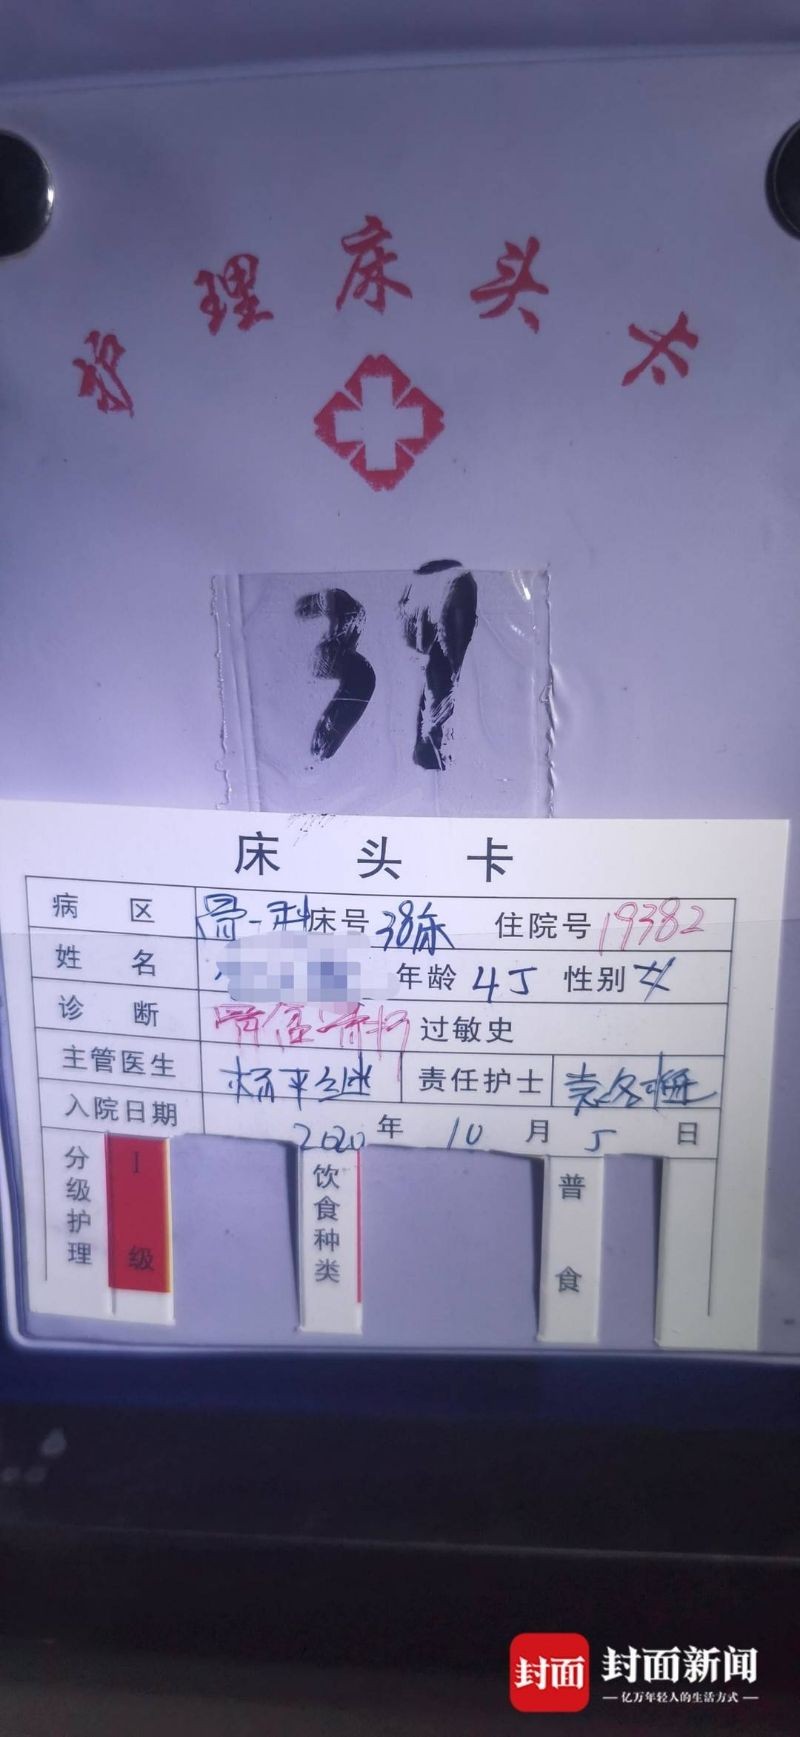 护理床头卡
39
床头卡
病区 骨一科 床号 38床 住院号 19382
姓名 年龄 4岁 性别 女
诊断 过敏史
主管医生 杨平继 责任护士
入院日期 2020年10月5日
分级护理 I级 饮食种类 普食
封面 封面新闻
亿万年轻人的生活方式